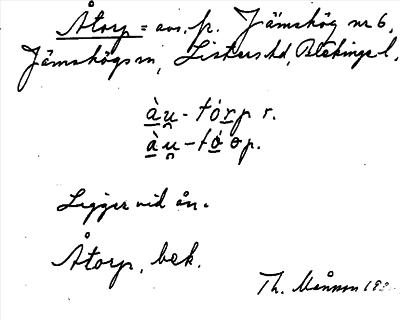 Åtorp = avs. fr. Jämshög nr 6,
Jämshögs sn, Listers hd, Blekinge l.
àu̯-tórp r.
àu̯-tó o p.
Ligger vid ån.
Åtorp, bek.
Th. Månsson